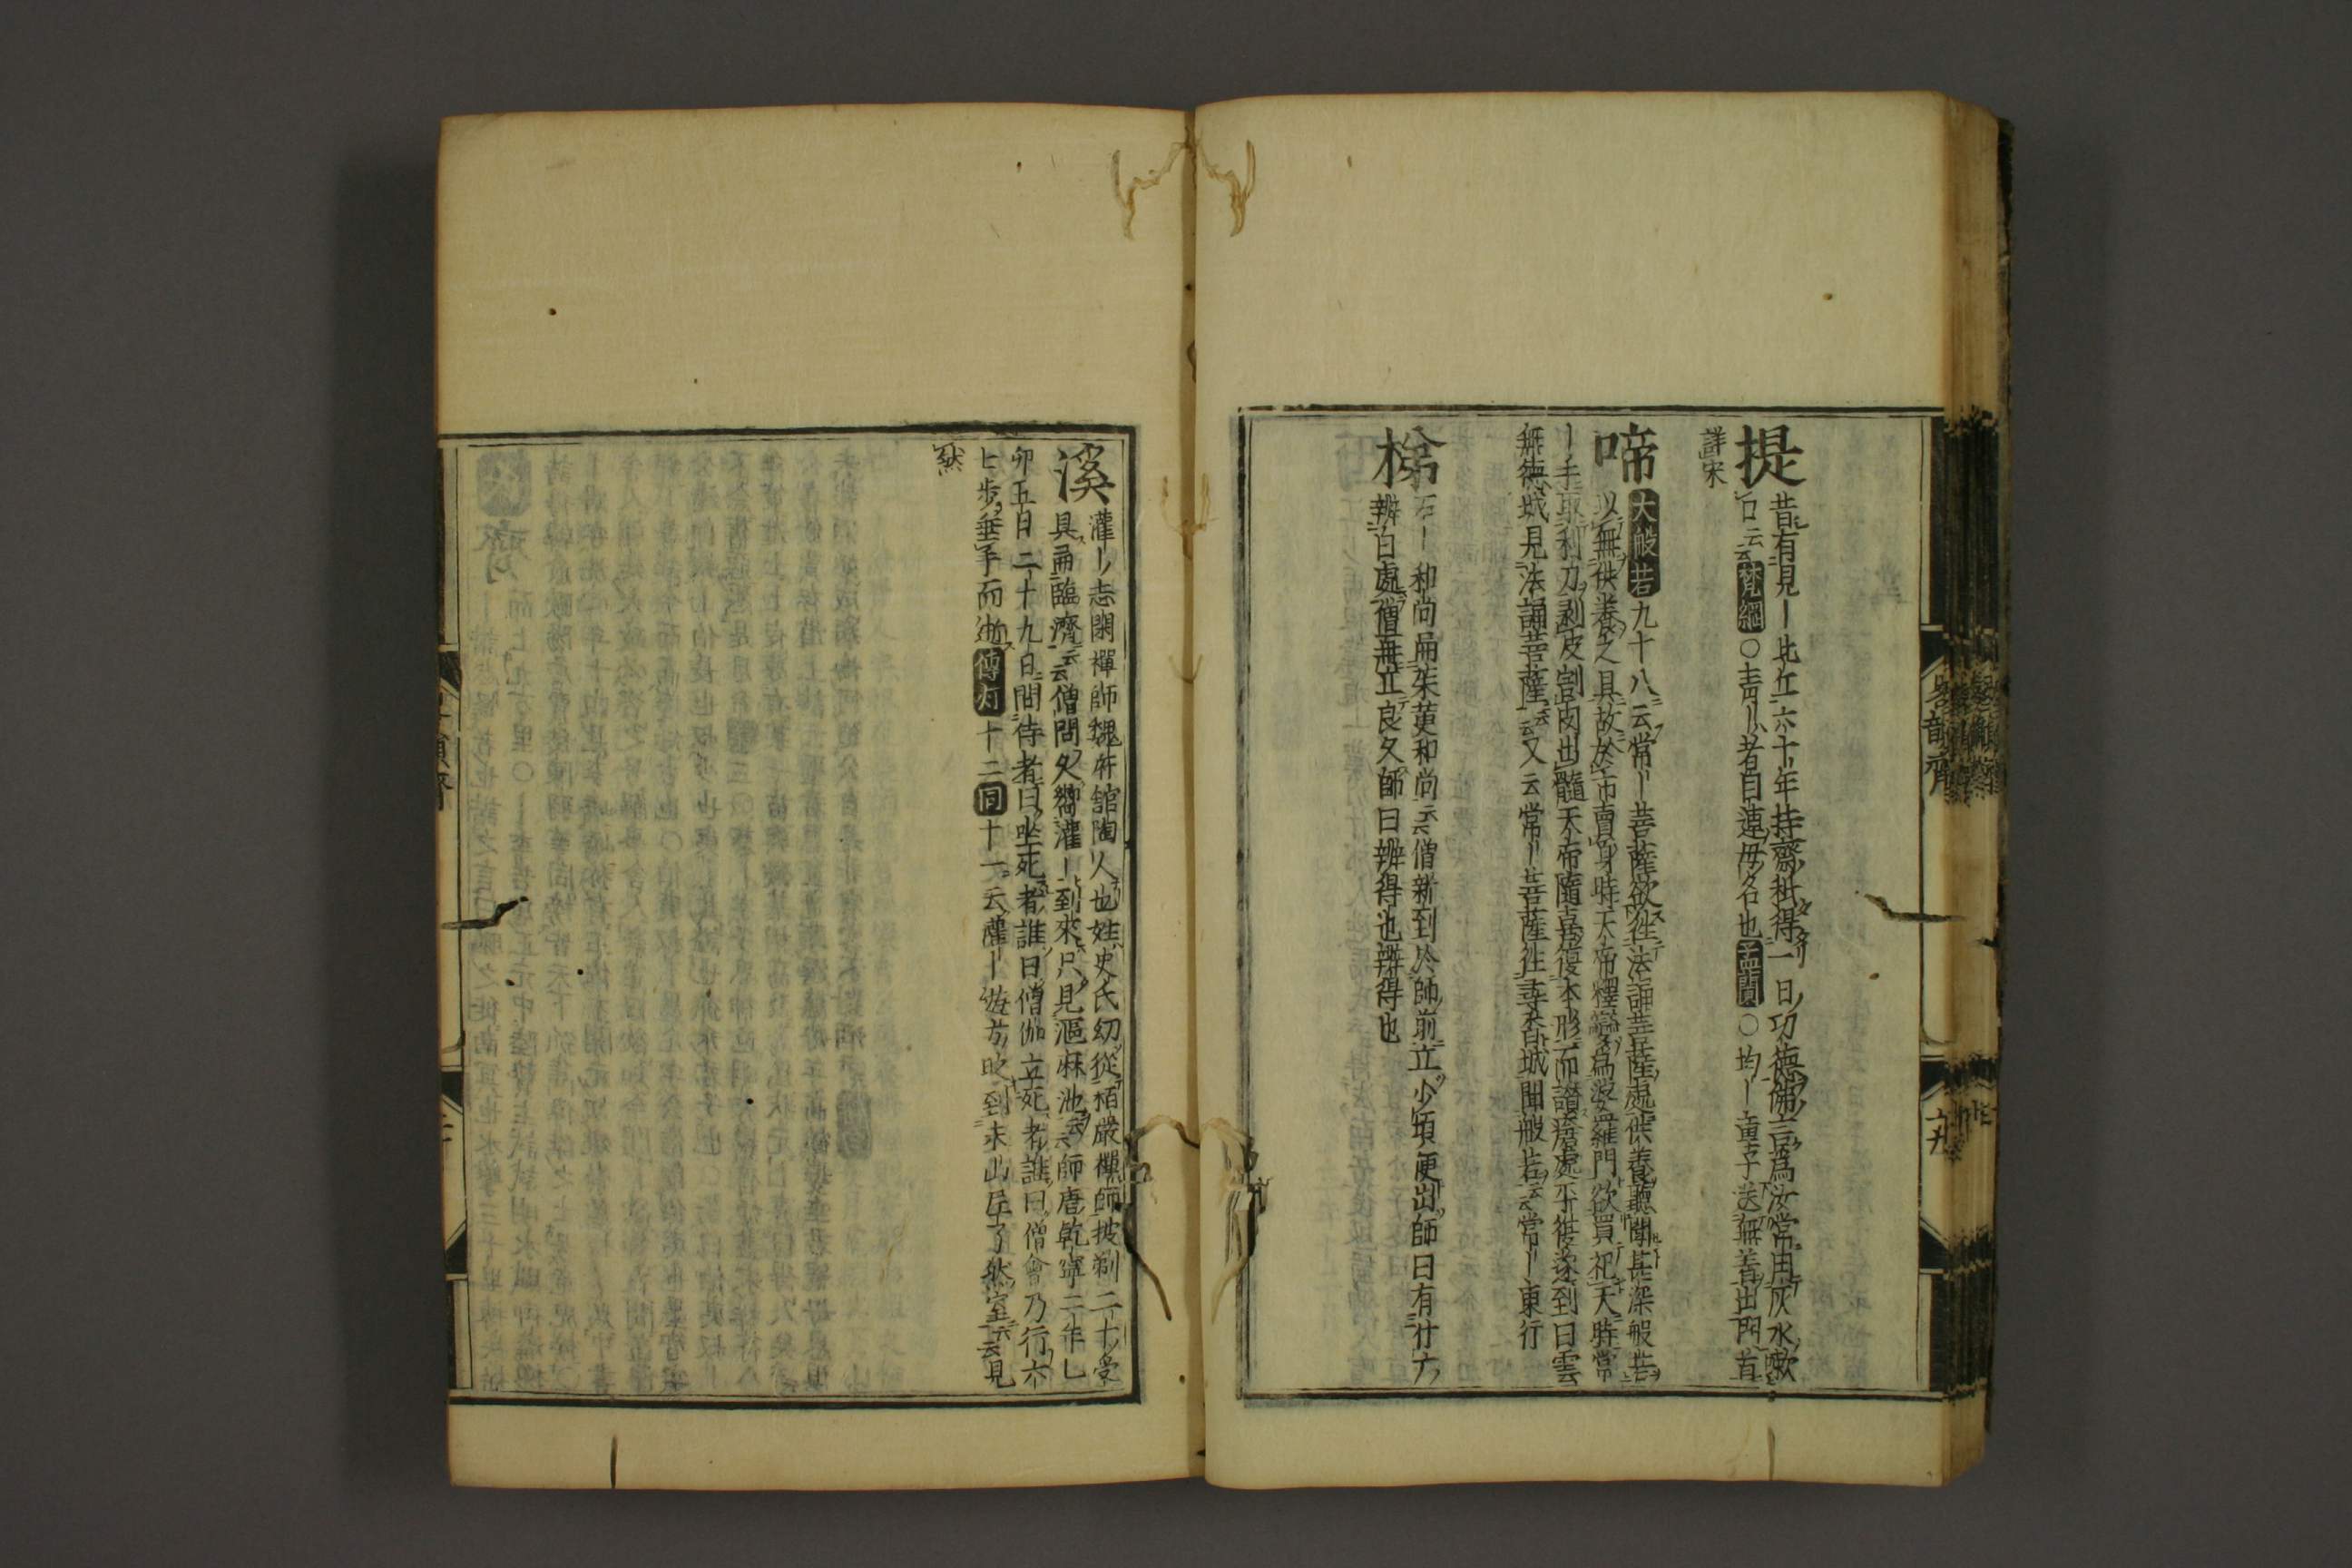 提
昔有見丨比丘六十年持齋秖得一日功德佛言爲汝常用灰水嗽
口云云梵網〇青丨者目連母名也盂蘭〇均丨童子送無着出門首
詳宋
啼
大般若九十八云常丨菩薩欲往法誦菩薩處供養聽聞甚深般若
以無供養之具故於市賣身時天帝釋變爲婆羅門欲買祀天時常
丨手取利刀剥皮割肉出髓天帝隨喜復本形而讃瘡處平復遂到曰雲
無德城見法誦菩薩云云又云常丨菩薩往尋香城聞般若云云常丨東行
梯
石丨和尚嗣茱萸和尚云云僧新到於師前立少頃便出師曰有什ナ
辨白處僧無立良久師曰辨得也辨得也
溪
灌丨志閑禪師魏府館陶人也姓史氏幼從栢嚴禪師披剃二十受
具嗣臨濟云云僧問久嚮灌丨到來只見漚麻池云云師唐乾寧二年乚
卯五日二十九日問侍者曰坐死者誰曰僧伽立死者誰曰僧會乃行六
七步垂手而逝傳灯十二同十一云灌丨遊方時到末山尼了然室云云見
然
畧韻 齊
六